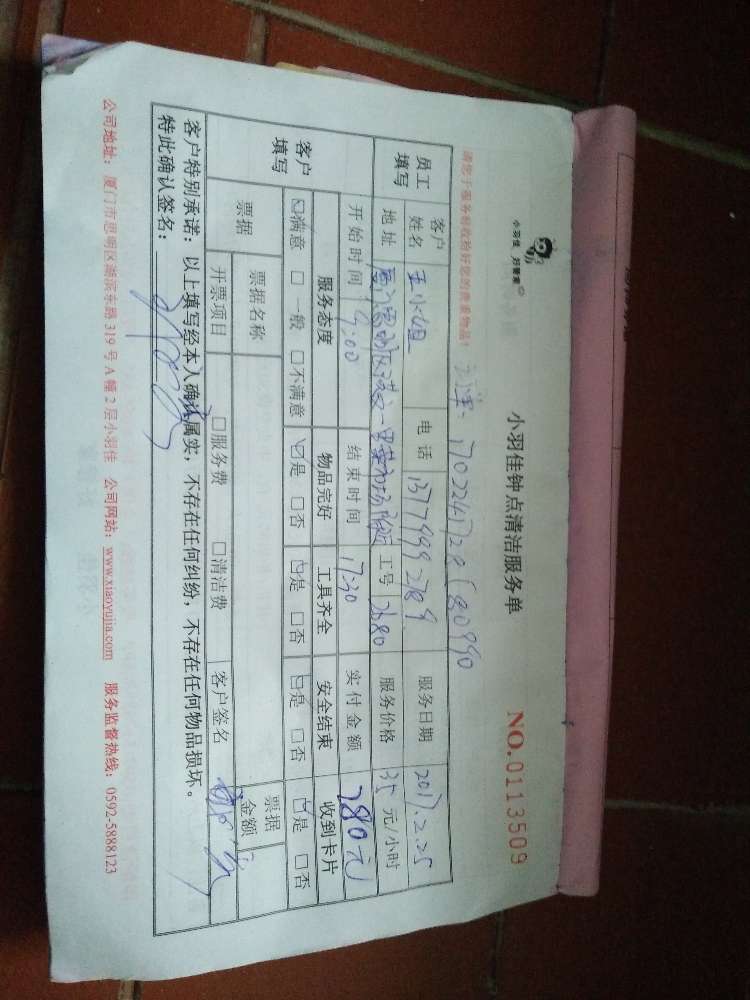 小羽佳 好管家
小羽佳钟点清洁服务单 NO.0113509
请您于服务前收拾好您的贵重物品!
员工填写 客户姓名 王小姐 电话 服务日期 2017.2.25
地址 工号 2680 服务价格 35 元/小时
开始时间 9:00 结束时间 17:30 实付金额 280元
客户填写 服务态度 物品完好 工具齐全 安全结束 收到卡片
☑满意 □一般 □不满意 ☑是 □否 ☑是 □否 ☑是 □否 ☑是 □否
票据 票据名称 票据金额
开票项目 □服务费 □清洁费 客户签名
客户特别承诺:以上填写经本人确认属实,不存在任何纠纷,不存在任何物品损坏。
特此确认签名:
公司地址:厦门市思明区湖滨东路 319 号 A 幢 2 层小羽佳 公司网站:www.xiaoyujia.com 服务监督热线:0592-5888123